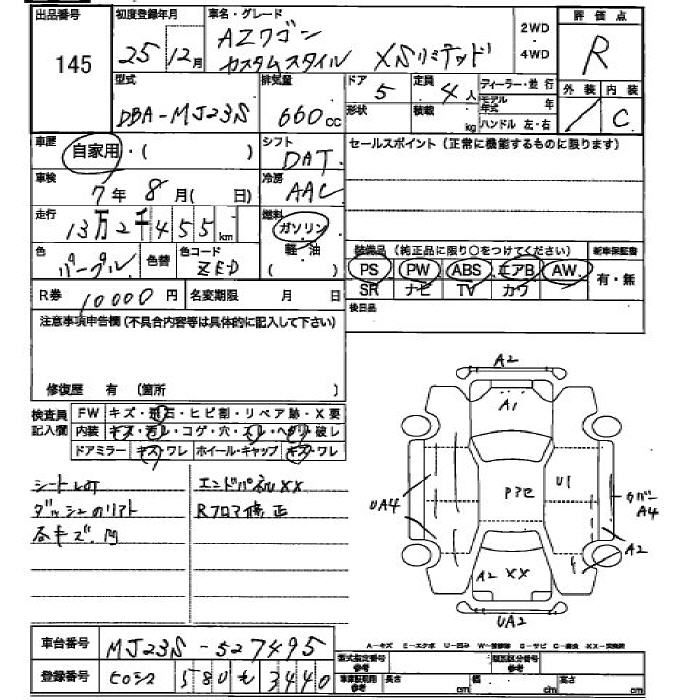 出品番号 初度登録年月 車名・グレード 評価点
145 25 12月 AZワゴン カスタムスタイル XSリミテッド 2WD・4WD R
型式 排気量 ドア 定員 ディーラー・並行 外装 内装
DBA-MJ23S 660cc 5 4人 モデル年式 年 / C
形状 積載 kg ハンドル 左・右
車歴 自家用・( ) シフト DAT セールスポイント(正常に機能するものに限ります)
車検 7年8月( 日) 冷房 AAC
走行 13万2千455km 燃料 ガソリン・軽・油 ( )
色 パープル 色替 色コード ZED
装備品(純正品に限り○をつけてください) 新車保証書
PS PW ABS エアB AW 有・無
SR ナビ TV カワ
R券 10000円 名変期限 月 日 後日品
注意事項申告欄(不具合内容等は具体的に記入して下さい)
修復歴 有 (箇所 )
検査員記入欄 FW キズ・飛石・ヒビ割・リペア跡・X要
内装 キズ・汚レ・コゲ・穴・スレ・ヘタリ・破レ
ドアミラー キズ・ワレ ホイール・キャップ キズ・ワレ
シートスレ エンドパネルXX
ダッシュのリフト Rフロア修正
各キズ、凹
A2
A1
Pアセ U1
UA4 カバーA4
A2
A2 XX
UA2
A-キズ E-エクボ U-凹み W-補修跡 S-サビ C-腐食 XX-交換済
車台番号 MJ23S-527495
登録番号 ヒロシマ 580 モ 3440
型式指定番号 参考 類別区分番号 参考
車庫証明用 参考 長さ cm 幅 cm 高さ cm